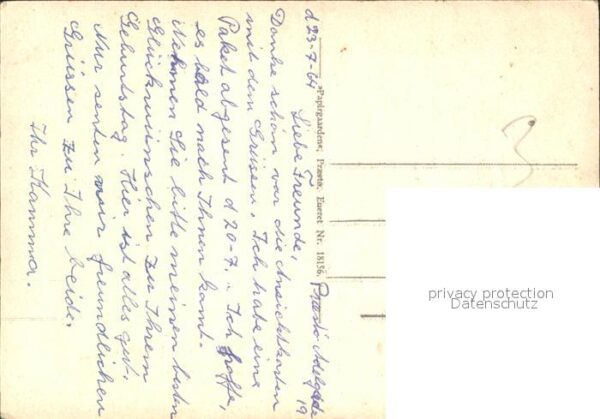 d 23-7-64
Præstø Adelgade
19
Liebe Freunde,
Danke schön var die Ansichtskarten
mit dem Grüssen. Ich habe eine
Paket abgesent d 20-7. Ich hoffe,
es bald nach Ihnen komt.
Nehmen Sie bitte meinen besten
Glückwünschen zu Ihrem
Geburtstag. Hier ist alles gut.
Nur senten wir freundlichen
Grüssen zu Ihre beide.
Ihr Hammer.
»Papirgaarden«, Præstø. Eneret Nr. 18156.
3
privacy protection
Datenschutz